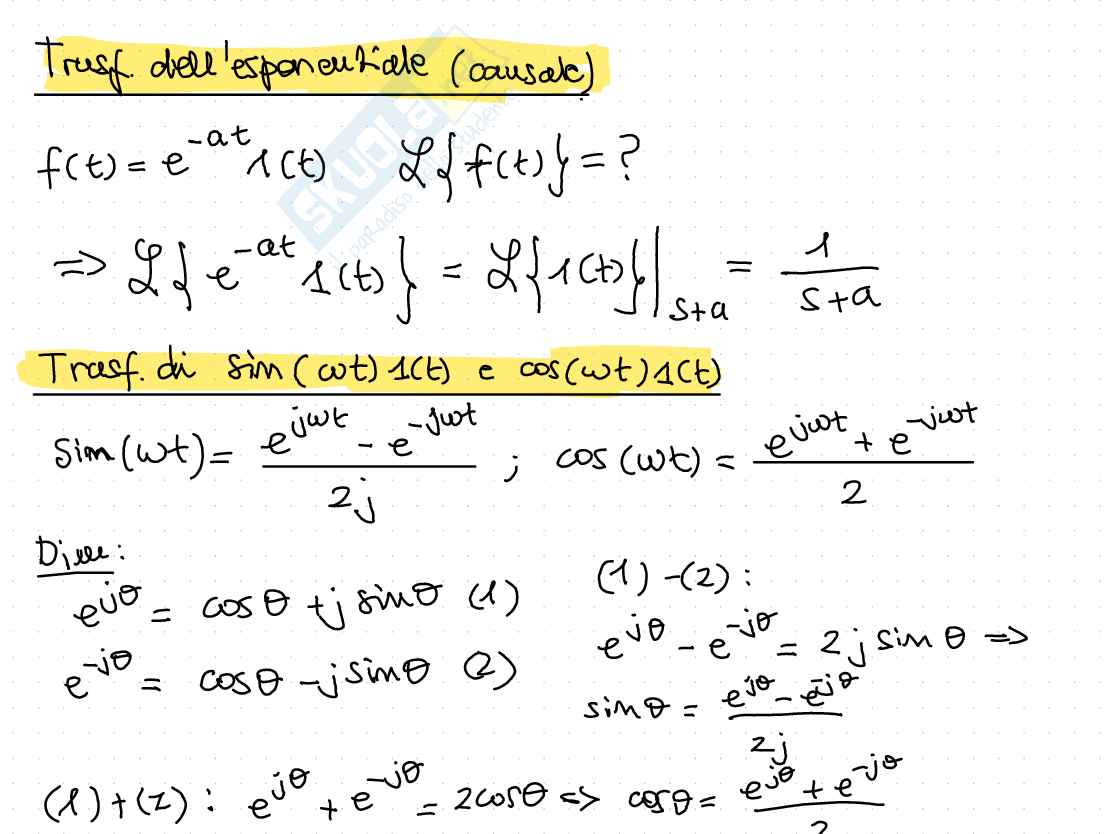 Trasf. dell'esponenziale (causale)
f(t) = e^{-at} 1(t)   ℒ{f(t)} = ?
⇒ ℒ{e^{-at} 1(t)} = ℒ{1(t)}|_{s+a} = 1/(s+a)
Trasf. di sin(ωt)1(t) e cos(ωt)1(t)
sin(ωt) = (e^{jωt} - e^{-jωt})/2j ; cos(ωt) = (e^{jωt} + e^{-jωt})/2
Dim:
e^{jθ} = cosθ + j sinθ (1)
e^{-jθ} = cosθ - j sinθ (2)
(1)-(2):
e^{jθ} - e^{-jθ} = 2j sinθ ⇒
sinθ = (e^{jθ} - e^{-jθ})/2j
(1)+(2): e^{jθ} + e^{-jθ} = 2cosθ ⇒ cosθ = (e^{jθ} + e^{-jθ})/2
SKUOLA